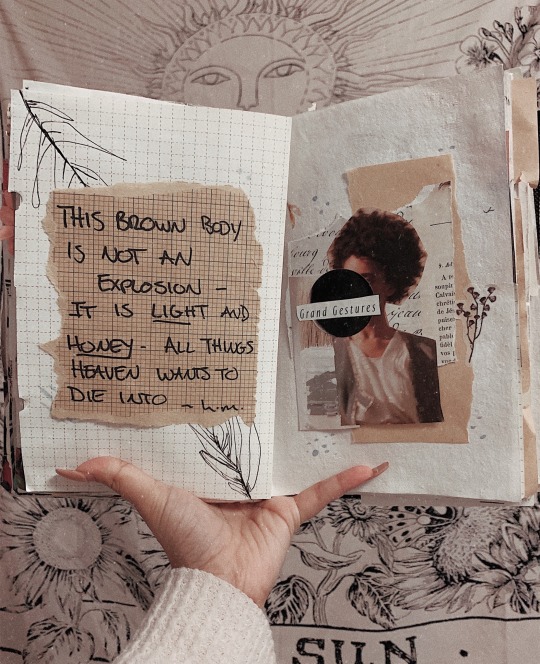 THIS BROWN BODY
IS NOT AN
EXPLOSION -
IT IS LIGHT AND
HONEY - ALL THINGS
HEAVEN WANTS TO
DIE INTO - h.m.
Grand Gestures
SUN .